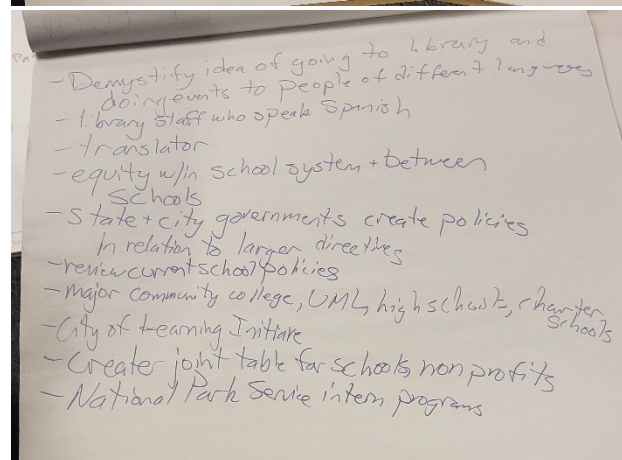 - Demystify idea of going to library and
doing events to people of different languages
- library staff who speak Spanish
- translator
- equity w/in school system + between
schools
- State + city governments create policies
in relation to larger directives
- review current school policies
- major community college, UML, high schools, charter
schools
- City of Learning Initiave
- Creater joint table for schools, non profits
- National Park Service intern programs